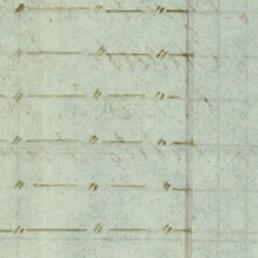 " — " — " —
" — " — " —
" — " — " —
" — " — " —
" — " — " —
" — " — " —